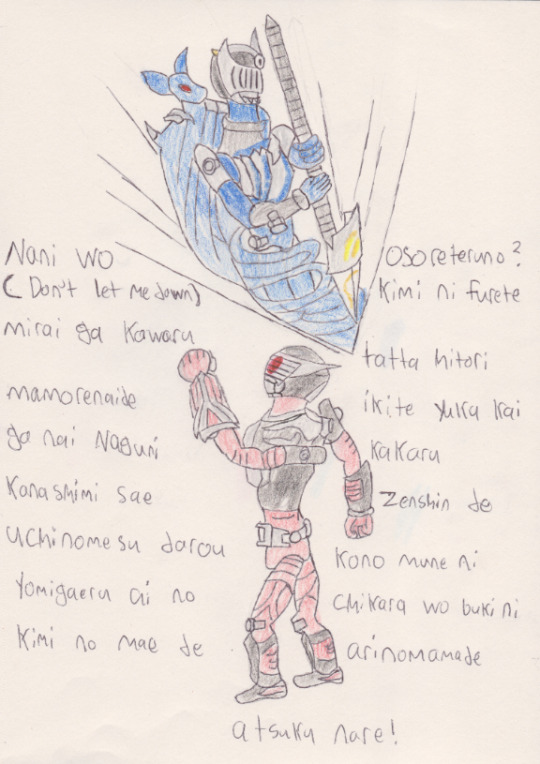 Nani wo osoreteruno?
(Don't let me down) Kimi ni furete
mirai ga kawaru tatta hitori
mamorenaide ikite yuka kai
ga nai Naguri kakaru
Konashimi sae Zenshin de
uchinomesu darou kono mune ni
Yomigaeru ai no chikara wo buki ni
Kimi no mae de arinomamade
atsuku nare!